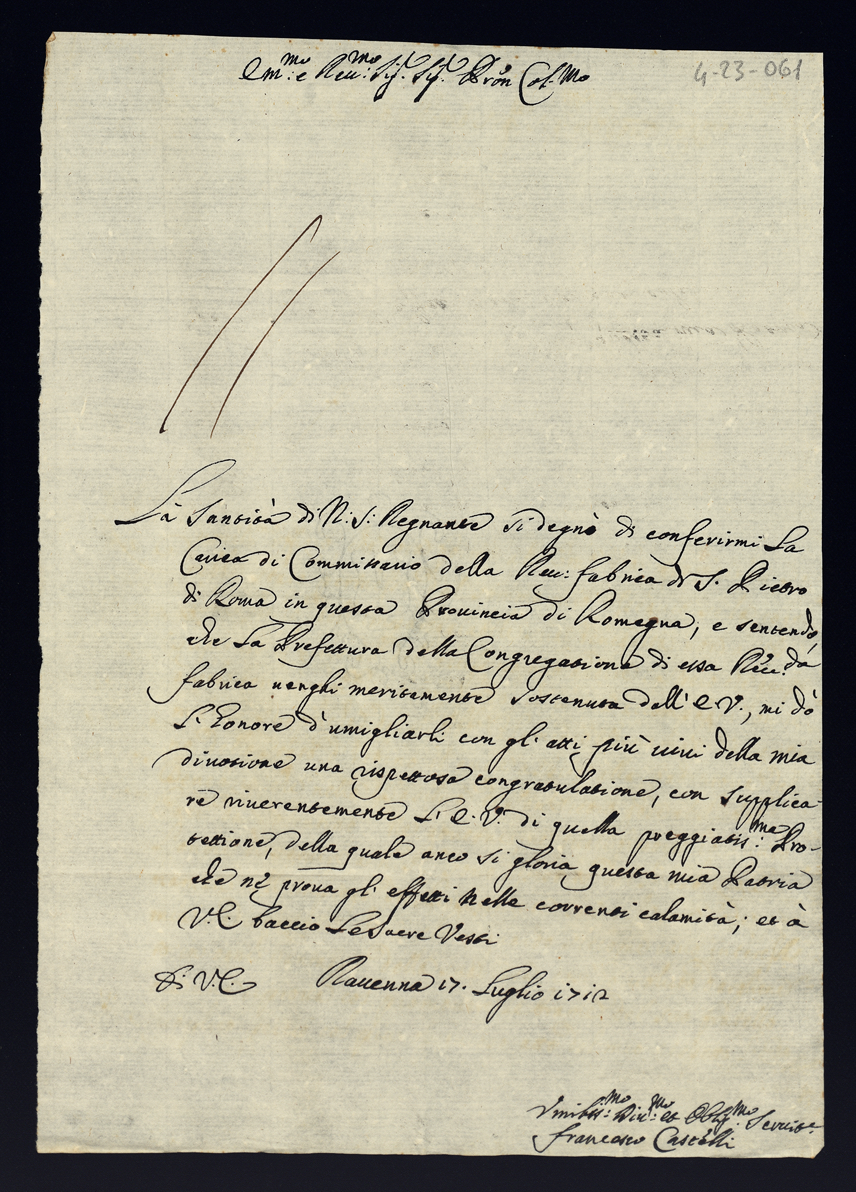 4-23-061
Em:mo e Reu:mo Sig.r Sig.r Pron Col.mo
La Santità di N: S: Regnante si degnò di conferirmi La
Carica di Commissario della Reu: fabrica di S. Pietro
di Roma in questa Prouincia di Romagna; e sentendo,
che La Prefettura della Congregatione di essa Reu:da
fabrica uenghi meritemente sostenuta dall' E.V., mi dò
L'honore d'umigliarli con gl'atti più uiui della mia
diuotione una rispettosa congratulatione, con supplica-
re riuerentemente L'E.V. di quella preggiatis:ma Pro-
tettione, della quale anco si gloria questa mia Patria
che nè proua gl'effetti nelle correnti calamità; et à
V.E. baccio Le Sacre Vesti
Di V.E. Rauenna 17. Luglio 1712
Vmiliss:mo Diu:mo et Obblig.mo Seruit.e
Francesco Castelli